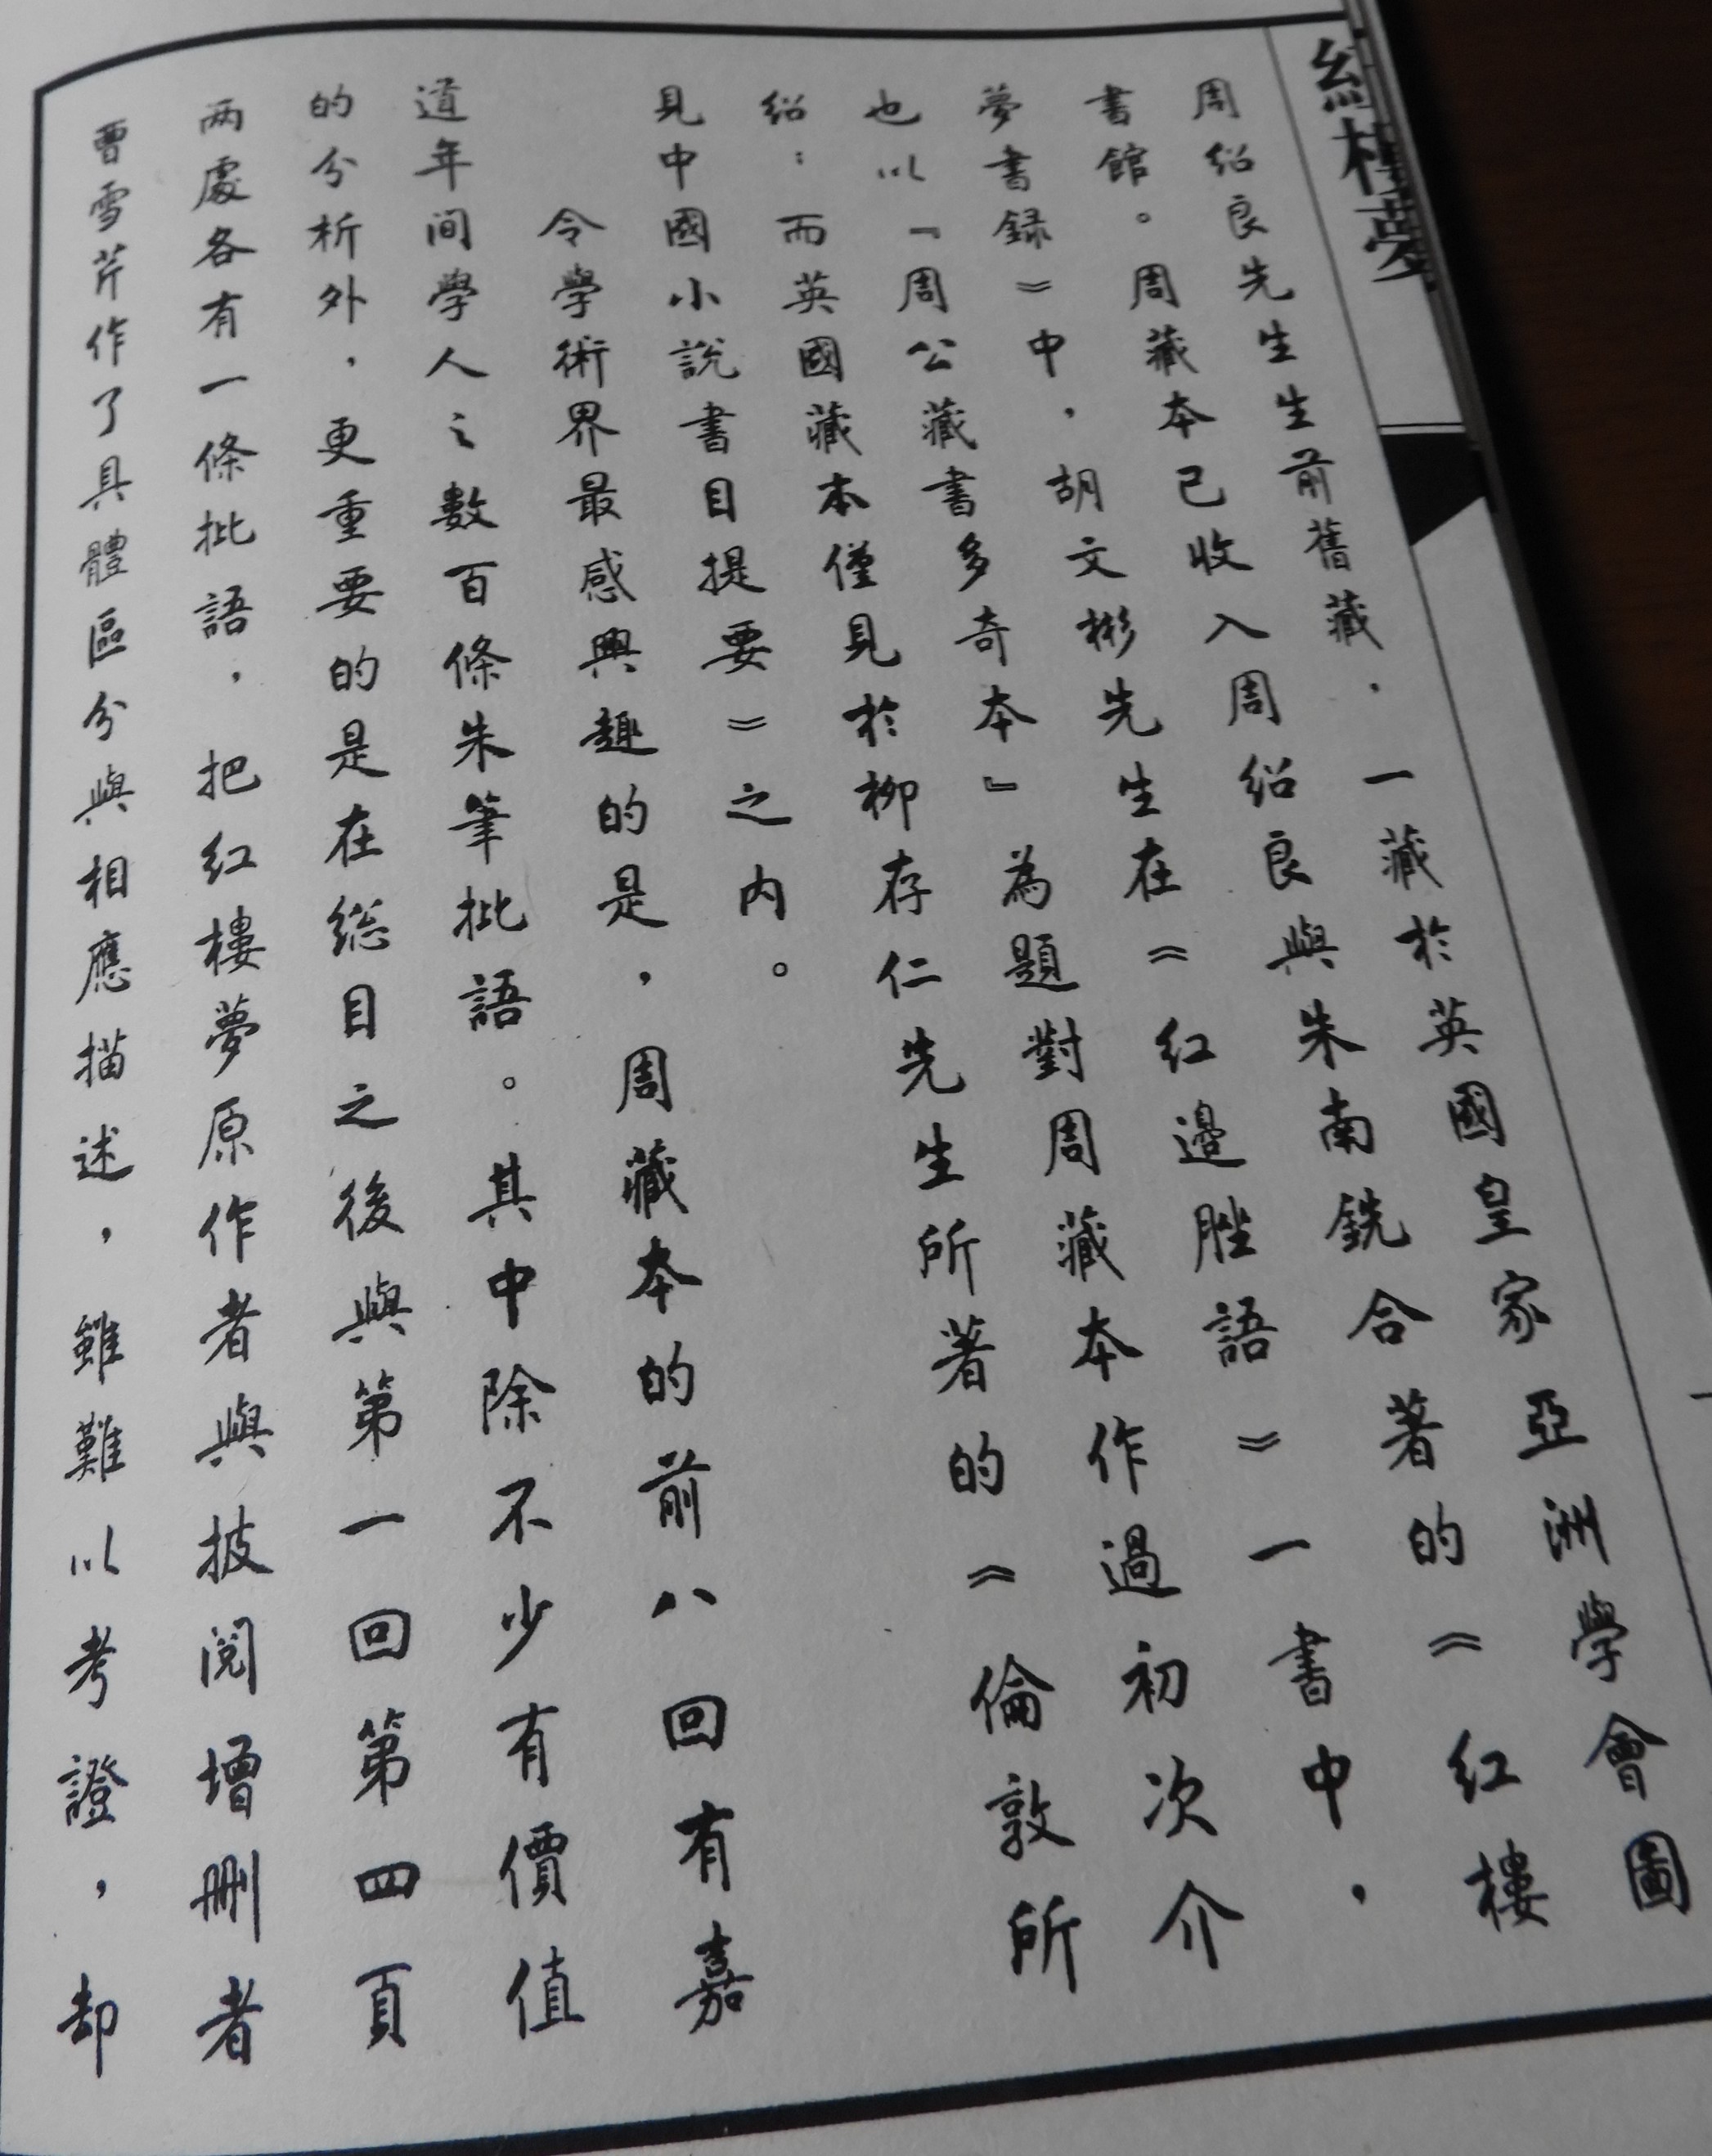 紅樓夢
周紹良先生生前舊藏，一藏於英國皇家亞洲學會圖
書館。周藏本已收入周紹良與朱南銑合著的《紅樓
夢書録》中，胡文彬先生在《紅邊脞語》一書中，
也以『周公藏書多奇本』為題對周藏本作過初次介
紹；而英國藏本僅見於柳存仁先生所著的《倫敦所
見中國小說書目提要》之內。
令學術界最感興趣的是，周藏本的前八回有嘉
道年间學人之數百條朱筆批語。其中除不少有價值
的分析外，更重要的是在総目之後與第一回第四頁
两處各有一條批語，把紅樓夢原作者與披閱增刪者
曹雪芹作了具體區分與相應描述，雖難以考證，却